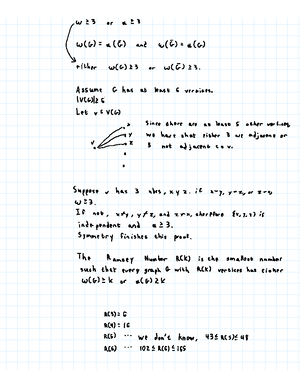 ω ≥ 3 or α ≥ 3
ω(G) = α(Ḡ) and ω(Ḡ) = α(G)
either ω(G) ≥ 3 or ω(Ḡ) ≥ 3.
Assume G has at least 6 vertices.
|V(G)| ≥ 6
Let v ∈ V(G)
Since there are at least 5 other vertices,
we have that either 3 are adjacent or
3 not adjacent to v.
v
x
y
z
Suppose v has 3 nbrs, x y z. if x~y, y~z, or z~x,
ω ≥ 3.
If not, x≁y, y≁z, and z≁x, therefore {x, y, z} is
independent and α ≥ 3.
Symmetry finishes this proof.
The Ramsey Number R(k) is the smallest number
such that every graph G with R(k) vertices has either
ω(G) ≥ k or α(G) ≥ k
R(3) = 6
R(4) = 18
R(5) ... we don't know, 43 ≤ R(5) ≤ 48
R(6) ... 102 ≤ R(6) ≤ 165